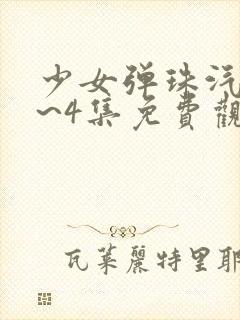 少女弹珠汽
~4集免費觀
瓦莱麗特里耶